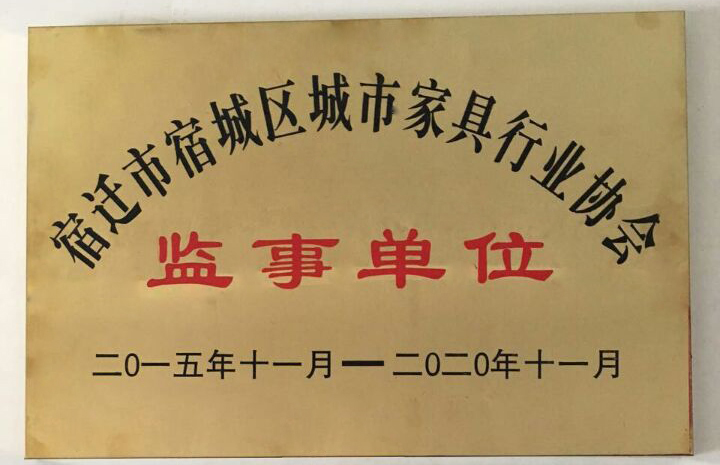 宿迁市宿城区城市家具行业协会
监事单位
二0一五年十一月一二0二0年十一月